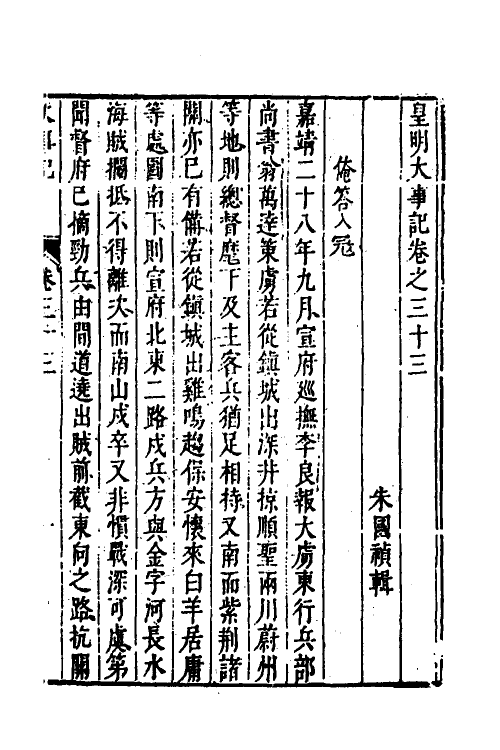 皇明大事記卷之三十三
朱國禎輯
俺答入寇
嘉靖二十八年九月宣府巡撫李良報大虜東行兵部
尚書翁萬達策虜若從鎮城出深井掠順聖兩川蔚州
等地則總督麾下及主客兵猶足相持又南而紫荆諸
關亦已有備若從鎮城出雞鳴趨保安懷來白羊居庸
等處圖南下則宣府北東二路戍兵方與金字河長水
海賊攔抵不得離次而南山戍卒又非慣戰深可虞第
聞督府已摘勁兵由間道遶出賊前截東向之路抗關
大事記
卷三十三